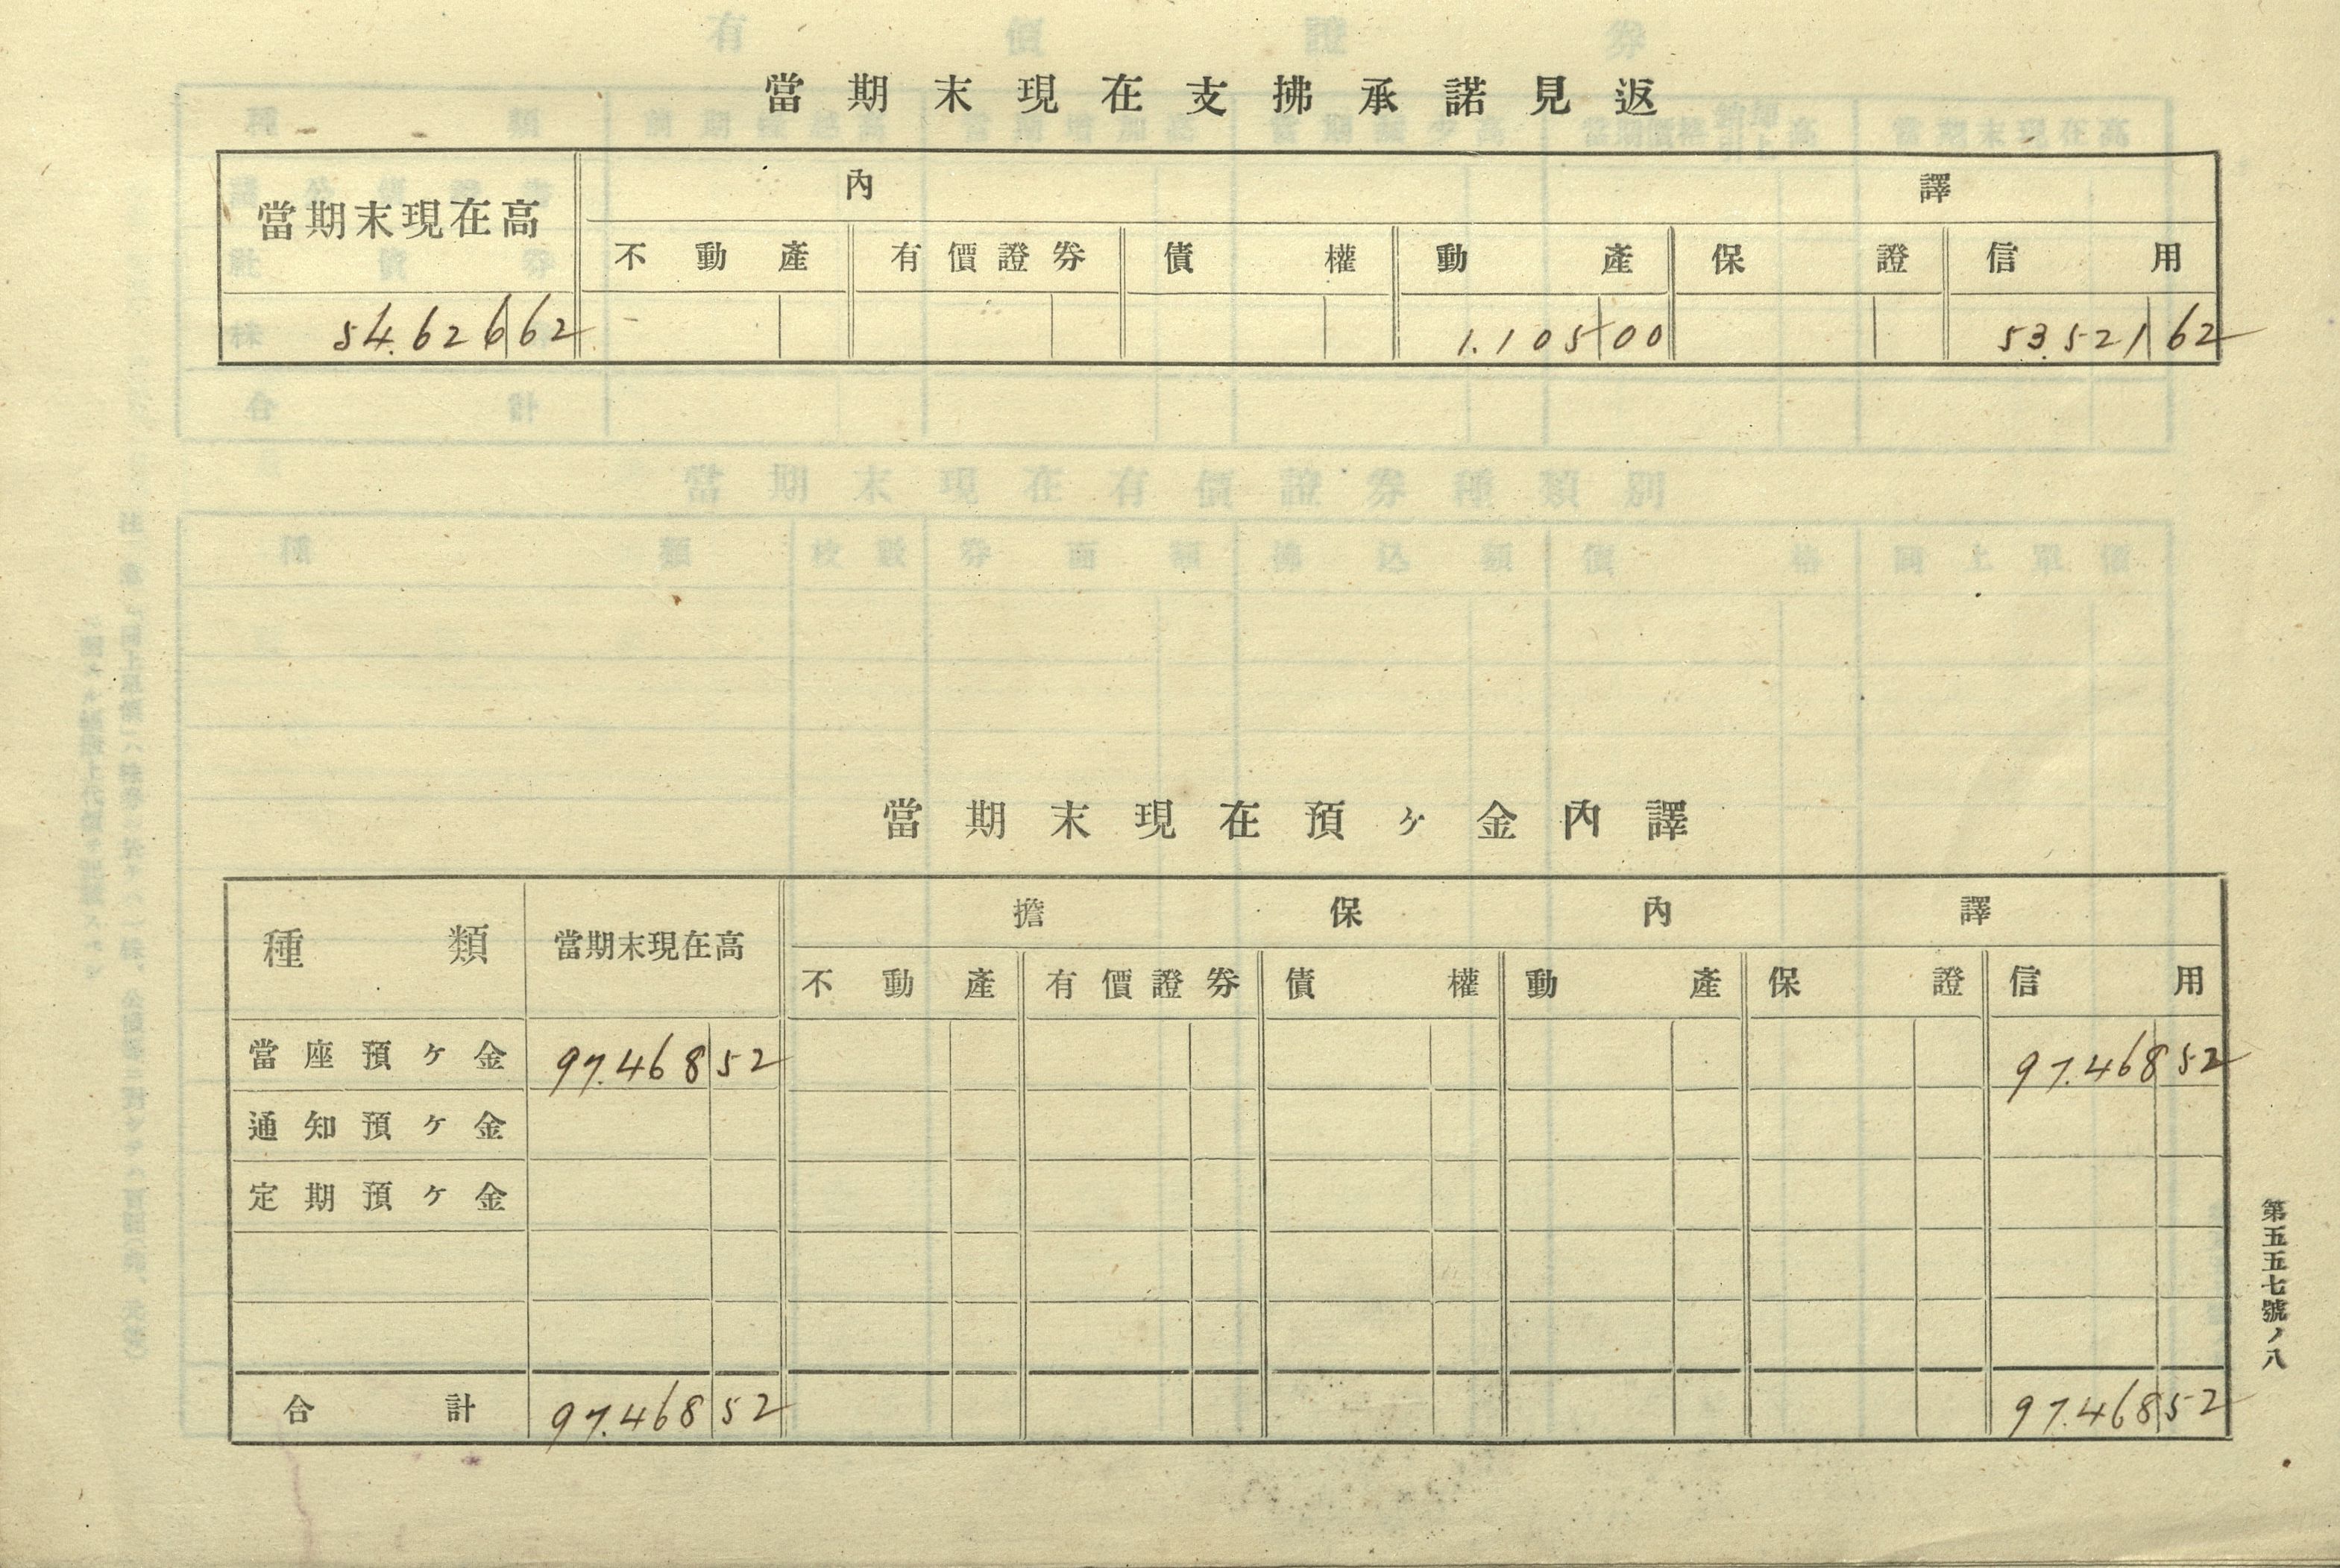 當期末現在支拂承諾見返
當期末現在高 內譯
不動產 有價證券 債權 動產 保證 信用
54.626 62 1.105 00 53.521 62
當期末現在預ヶ金內譯
種類 當期末現在高 擔保內譯
不動產 有價證券 債權 動產 保證 信用
當座預ヶ金 97.468 52 97.468 52
通知預ヶ金
定期預ヶ金
合計 97.468 52 97.468 52
第五五七號ノ八